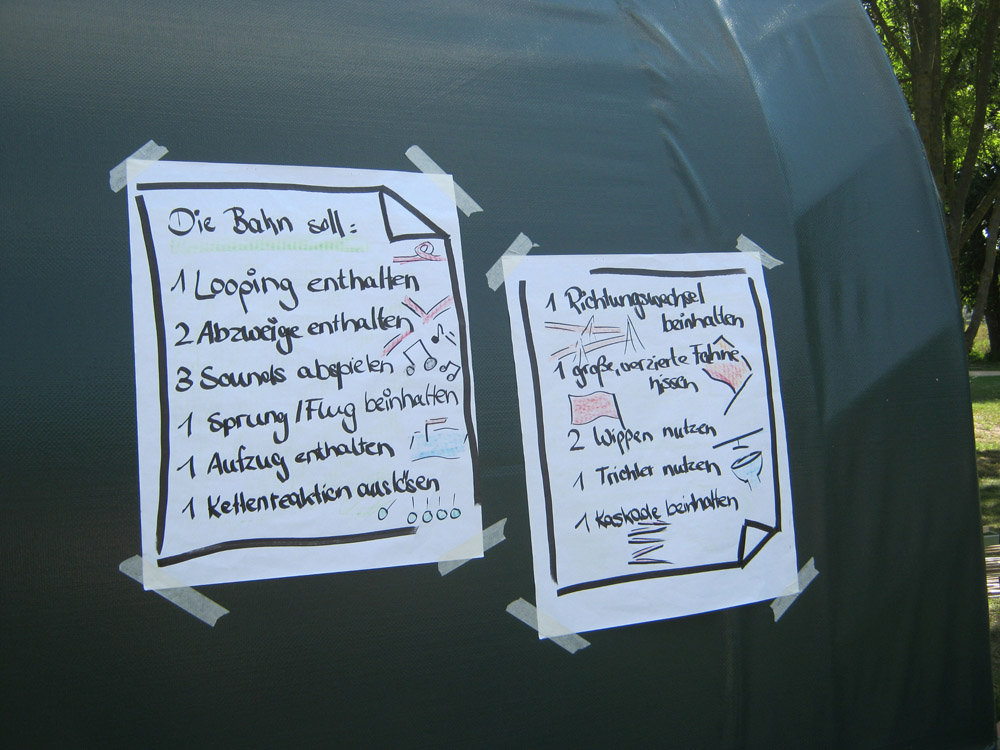 Die Bahn soll:
1 Looping enthalten
2 Abzweige enthalten
3 Sounds abspielen
1 Sprung/Flug beinhalten
1 Aufzug enthalten
1 Kettenreaktion auslösen
1 Richtungswechsel
beinhalten
1 große, verzierte Fahne
hissen
2 Wippen nutzen
1 Trichter nutzen
1 Kaskade beinhalten